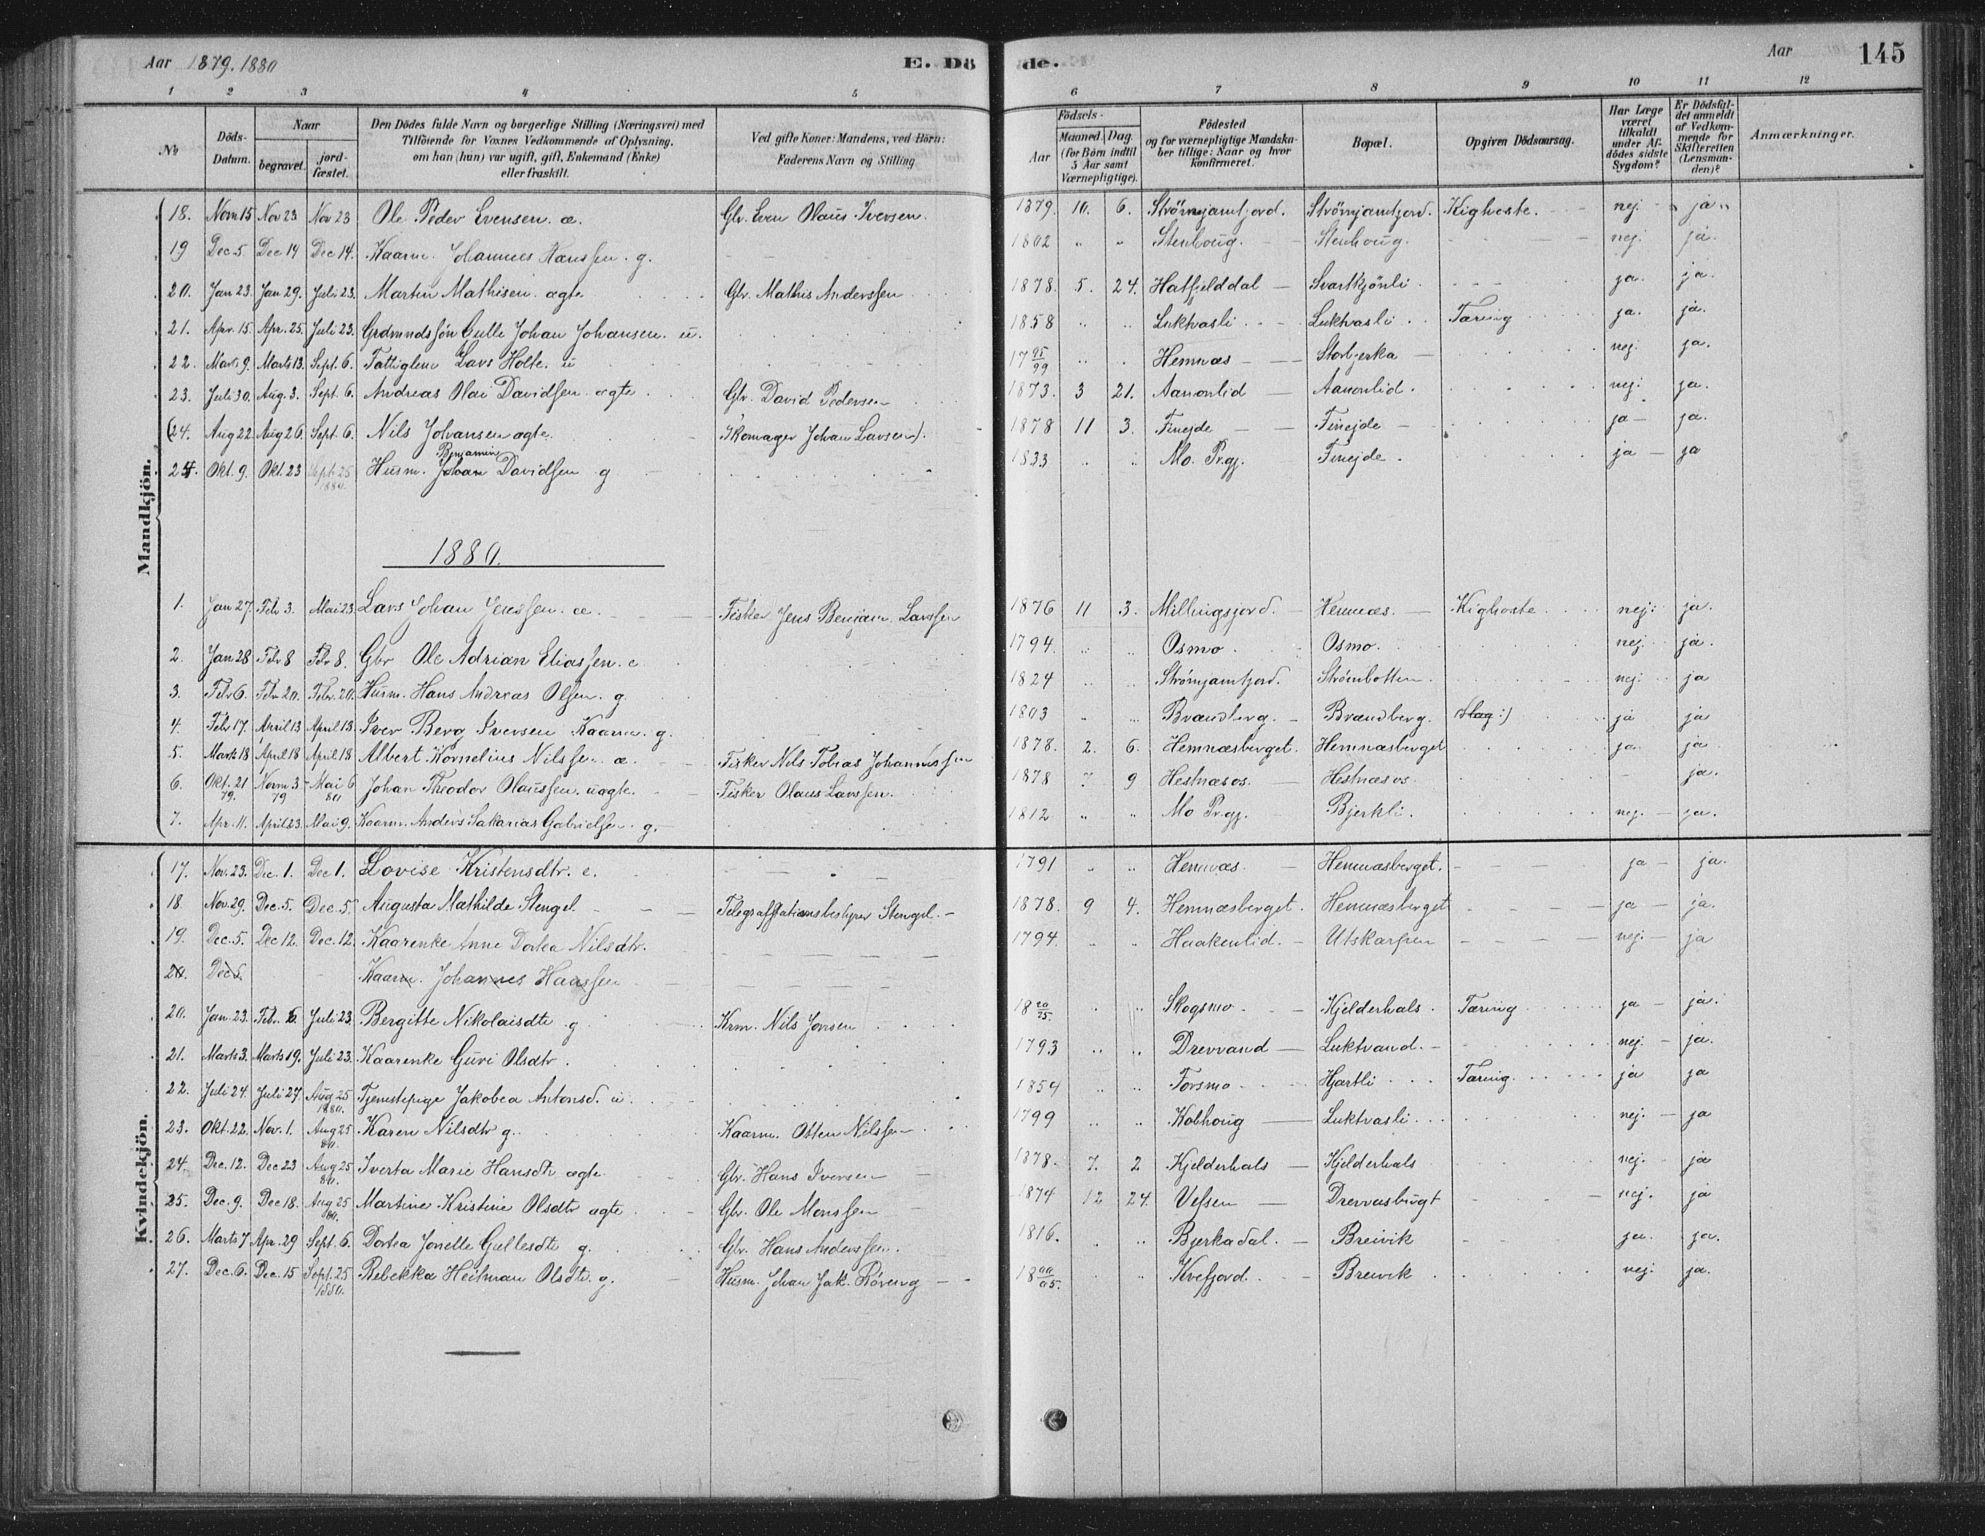 Aar 1879. 1880 E. Dö de. Aar 145
1 2 3 4 5 6 7 8 9 10 11 12
No Döds-Datum. Naar begravet. jord-fæstet. Den Dödes fulde Navn og borgerlige Stilling (Næringsvei) med Tilföiende for Voxnes Vedkommende af Oplysning, om han (hun) var ugift, gift, Enkemand (Enke) eller fraskilt. Ved gifte Koner: Mandens, ved Börn: Faderens Navn og Stilling. Födsels- Aar Maaned. Dag. (for Börn indtil 5 Aar samt Værnepligtige). Födested og for værnepligtige Mandskaber tillige: Naar og hvor konfirmeret. Bopæl. Opgiven Dödsaarsag. Har Læge været tilkaldt under Afdödes sidste Sygdom? Er Dödsfaldet anmeldt af Vedkommende for Skifteretten (Lensmanden)? Anmærkninger.
Mandkjön.
18. Novm 15 Nov 23 Nov 23 Ole Peder Evensen. æ. Gbr. Even Olaus Iversen. 1879. 10. 6. Strömjamfjord. Strömjamfjord. Kighoste. nej ja
19 Dec. 5 Dec 14 Dec 14. Kaarm. Johannes Hanssen. g. 1802 " " Stenhoug. Stenhoug. nej. ja.
20. Jan 23. Jan 29. Juli 23. Martin Mathisen. ægte Gbr. Mathis Anderssen 1878. 5. 24. Hatfjelddal Svartkjönli. ja. ja.
21. Apr. 15 Apr. 25. Juli 23. Grdmandssön Gulle Johan Johansen. u. 1858 " " Luktvasli Luktvasli Tæring ja. ja.
22. Marts 9. Marts 13. Sept. 6. Fattiglem Lars Holte. u 17 95/99 Hemnæs Storbjerka nej. ja.
23. Juli 30. Aug. 3. Sept. 6. Andreas Olai Davidsen. ægte Gbr. David Pedersen 1873. 3 21. Aanonlid Aanonlid. nej. ja.
(24. Aug 22 Aug 26. Sept. 6. Nils Johansen ægte. Skomager Johan Larsen). 1878 11 3. Finejde Finejde ja ja.
24. Okt. 9. Okt. 23 Sept. 25 1880. Husm. Johan Benjamin Davidsen g 1833 " " Mo. Prgj. Finejde. ja ja
1880.
1. Jan 27. Feb 3. Mai 23. Lars Johan Jenssen. æ. Fisker Jens Benjam. Larssen 1876 11 3. Millingsjord. Hemnæs. Kighoste nej. ja.
2. Jan 28 Feb 8 Feb 8. Gbr Ole Adrian Eliassen. e 1794. " " Osmo. Osmo. nej. ja.
3. Feb 6. Feb 20. Feb. 20. Husm. Hans Andreas Olsen. g. 1824 " " Strömjamfjord. Strömbotten nej. ja
4. Feb 17. April 13 April 13. Iver Berg Iversen Kaarm. g. 1803 " " Brandberg. Brændberg. (Slag:) ja ja
5. Marts 18 April 18 April 18 Albert Kornelius Nilssen. æ. Fisker Nils Tobias Johannessen 1878. 2. 6. Hemnæsberget. Hemnæsberget ja. ja
6. Okt. 21 79. Novm 3 79 Mai 6 80 Johan Theodor Olaussen. uægte. Fisker Olaus Larssen. 1878 7 9 Hestnæsos. Hestnæsos. ja.
7. Apr. 11. April 23. Mai 9. Kaarm. Anders Sakarias Gabrielsen. g. 1812 " " Mo Prgj. Bjerkli. nej. ja.
Kvindekjön.
17. Nov. 23. Dec. 1. Dec 1. Lovise Kristensdtr. e. 1791 " " Hemnæs. Hemnæsberget. ja ja.
18. Nov. 29. Dec. 5. Dec. 5. Augusta Mathilde Stengel. Telegrafstationsbestyrer Stengel. 1878. 9 4. Hemnæsberget. Hemnæsberget ja ja.
19. Dec. 5. Dec 12. Dec. 12. Kaarenke Anne Dortea Nilsdtr. 1794. " " Haakenlid. Utskarpen nej. ja
20. Dec 5. Kaarm. Johannes Hanssen
20. Jan. 23. Feb. 6. Juli 23. Bergitte Nikolaisdtr g Krm. Nils Jonsen 18 20/25. Skogsmo. Kjelderhals. Tæring ja ja.
21. Marts 3. Marts 19. Juli 23. Kaarenke Guri Olsdtr. 1793 " " Drevvand Luktvand. nej. ja.
22. Juli 24. Juli 27. Aug 25 1880. Tjenestepige Jakobea Antonsd. u. 1859 " " Forsmo Hjartli Tæring ja ja
23. Okt. 22. Nov. 1. Aug 25 80. Karen Nilsdtr g. Kaarm. Otten Nilssen 1799 " " Kobhoug Luktvasli nej. ja
24. Dec. 12. Dec 23 Aug 25 80. Iverta Marie Hansdtr ægte Gbr. Hans Iversen 1878. 7. 2 Kjelderhals Kjelderhals nej. ja
25. Dec. 9. Dec 18. Aug 25 80. Martine Kristine Olsdtr ægte Gbr. Ole Monssen 1874 12 24. Vefsen Drevvasbugt nej. ja
26. Marts 7 Apr. 29 Sept. 6. Dortea Jonette Gullesdtr g. Gbr. Hans Anderssen. 1816. " " Bjerkadal. Breivik ja. ja.
27. Dec. 6. Dec. 15 Sept. 25 1880. Rebekka Heitman Olsdtr. g. Husm. Johan Jak. Röving 18 00/05. Kvefjord. Breivik nej. ja.